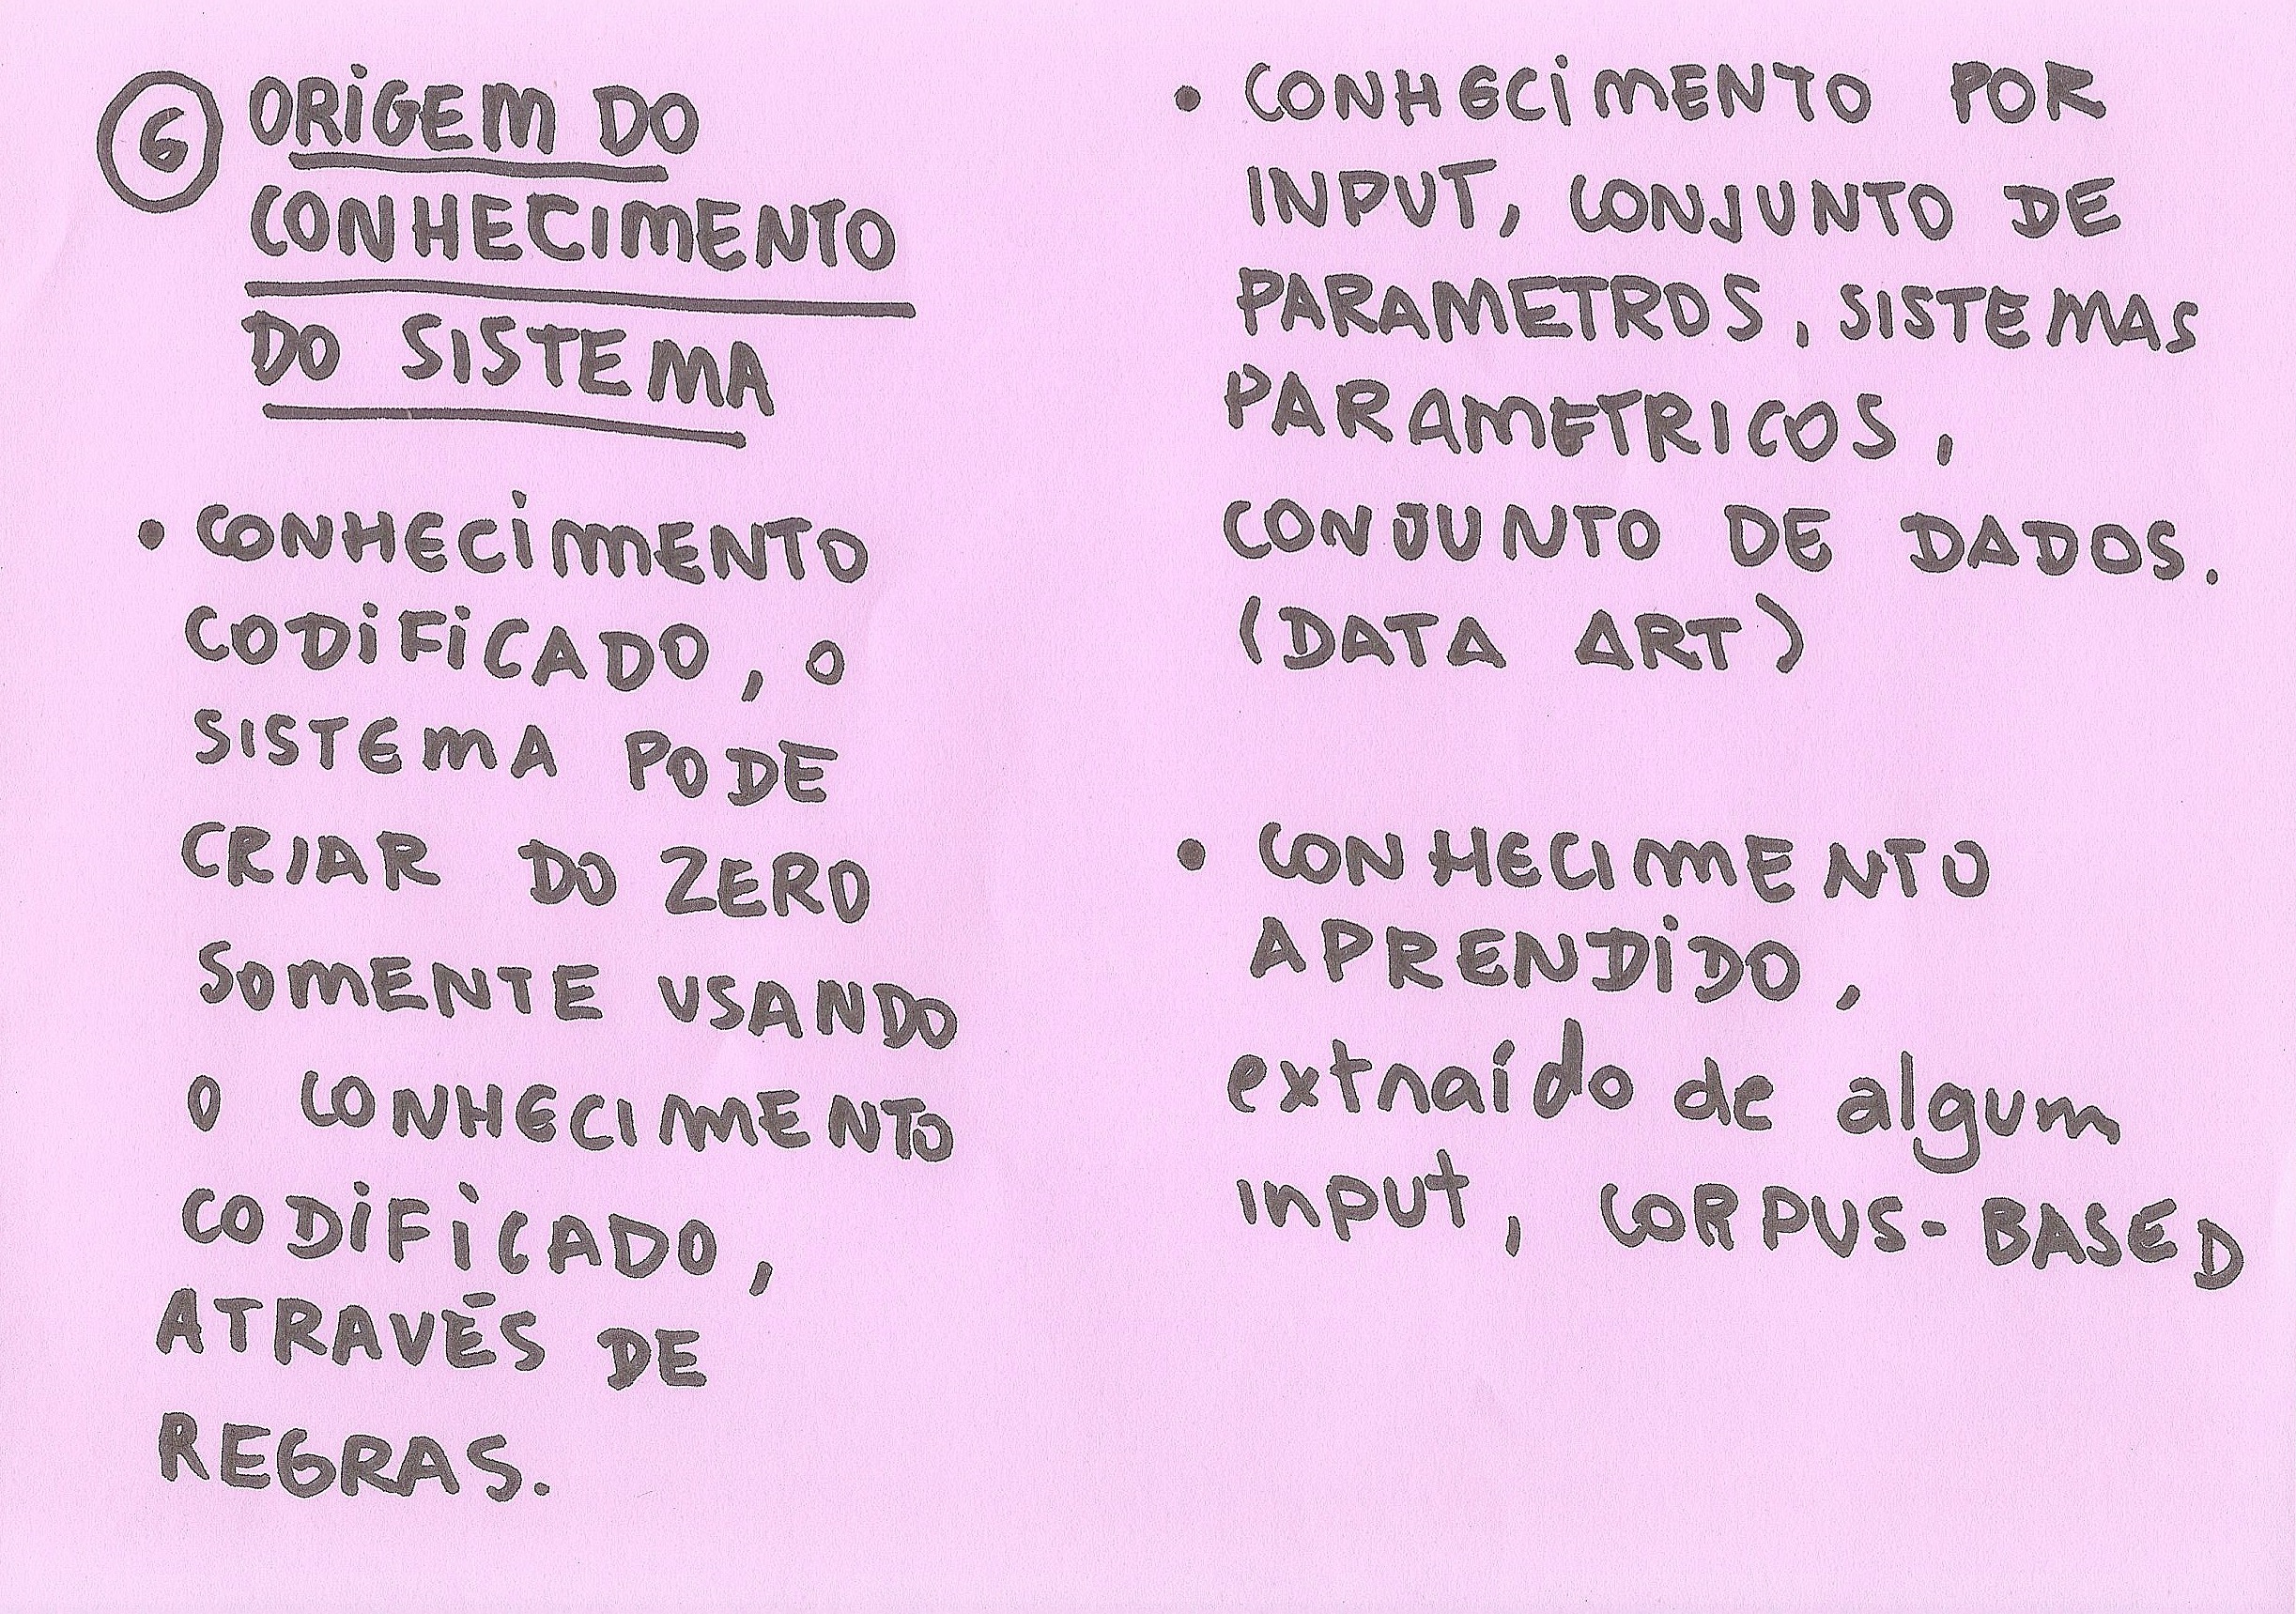 6 ORiGEM DO
CONHECIMENTO
DO SISTEMA
• CONHECiMENTO
CODiFiCADO, O
SISTEMA PODE
CRIAR DO ZERO
SOMENTE USANDO
O CONHECIMENTO
CODiFiCADO,
ATRAVÉS DE
REGRAS.
• CONHECiMENTO POR
INPUT, CONJUNTO DE
PARAMETROS, SISTEMAS
PARAMETRICOS,
CONJUNTO DE DADOS.
(DATA ART)
• CONHECIMENTO
APRENDiDO,
extraído de algum
input, CORPUS-BASED